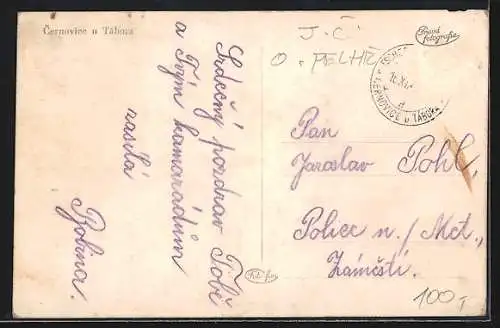 Černovice u Tábora
Srdečný pozdrav Tobě
a Tvým kamarádům
zasílá
J-Č
O. PELHŘ
Pravá
fotografie
ČERNOVICE u TÁBORA
Pan
Jaroslav Pohl,
Police n./Met.,
Záměstí.
100,-